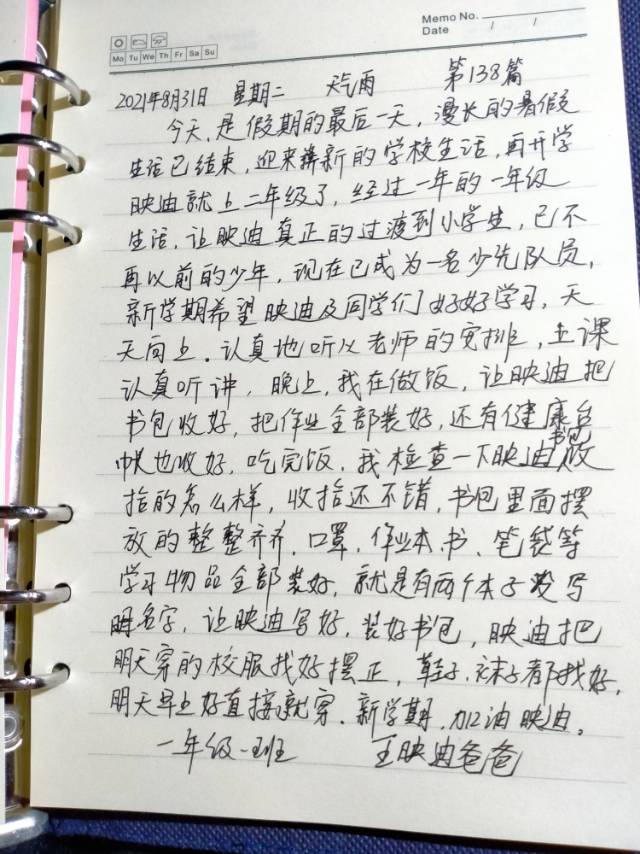 Memo No.
Date / /
Mo Tu We Th Fr Sa Su
2021年8月31日 星期二 天气雨 第138篇
今天,是假期的最后一天,漫长的暑假
生活已结束,迎来崭新的学校生活,再开学
映迪就上二年级了,经过一年的一年级
生活,让映迪真正的过渡到小学生,已不
再以前的少年,现在已成为一名少先队员,
新学期希望映迪及同学们好好学习,天
天向上。认真地听从老师的安排,上课
认真听讲,晚上,我在做饭,让映迪把
书包收好,把作业全部装好,还有健康台
帐也收好,吃完饭,我检查一下映迪书包收
拾的怎么样,收拾还不错,书包里面摆
放的整整齐齐,口罩,作业本、书、笔袋等
学习物品全部装好,就是有两个本子没写
名字,让映迪写好,装好书包,映迪把
明天穿的校服找好摆正,鞋子、袜子都找好,
明天早上好直接就穿。新学期,加油映迪。
一年级一班 王映迪爸爸